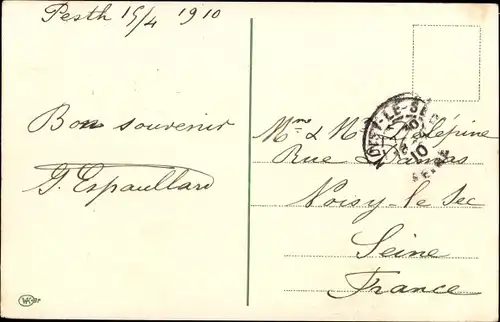 Pesth 15/4 1910
Bon souvenir
G. Espaullard
Mme & Mr Delépine
Rue Damas
Noisy le Sec
Seine
France
NOISY-LE-SEC
10